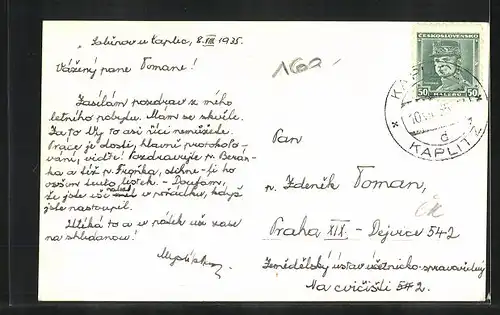 Žabinov u Kaplic, 8.VIII.1935.
Vážený pane Tomane!
Zasílám pozdrav z mého
letního pobytu. Mám se skvěle.
Za to Vy to asi říci nemůžete.
Práce je dosti, hlavně protokolo-
vání, viďte! Pozdravujte p. Beran-
ka a též p. Fupíka, stihne-li ho
osším tento lístek. - Doufám,
že jste už našel v pořádku, když
jste nastoupil.
Utíká to a v pátek už zase
na shledanou!
160-
ČESKOSLOVENSKO
50 50
HALÉŘŮ
KAPLICE
KAPLITZ
Pan
p. Zdeněk Toman,
Praha XIX - Dejvice 542
Zemědělský ústav účetnicko-spravovědný
Na cvičišti 542.